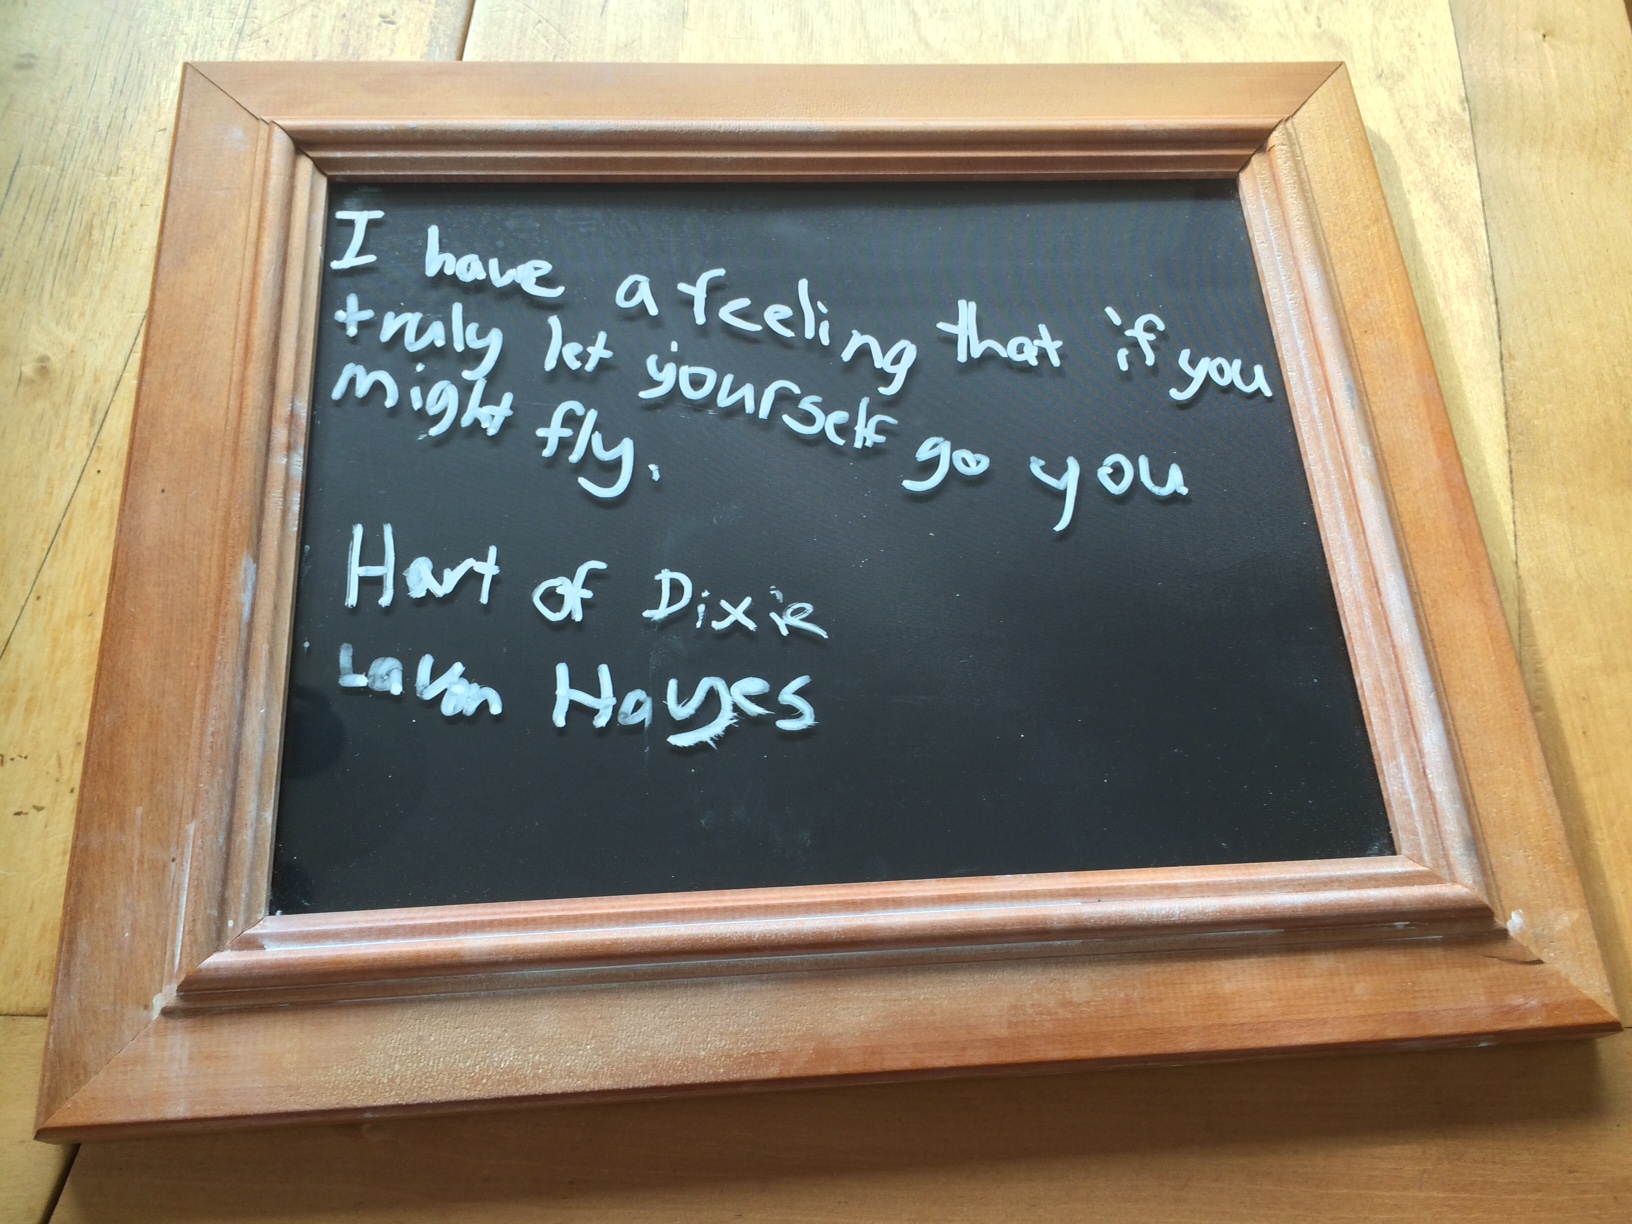 I have a feeling that if you
truly let yourself go you
might fly.
Hart of Dixie
Lavon Hayes